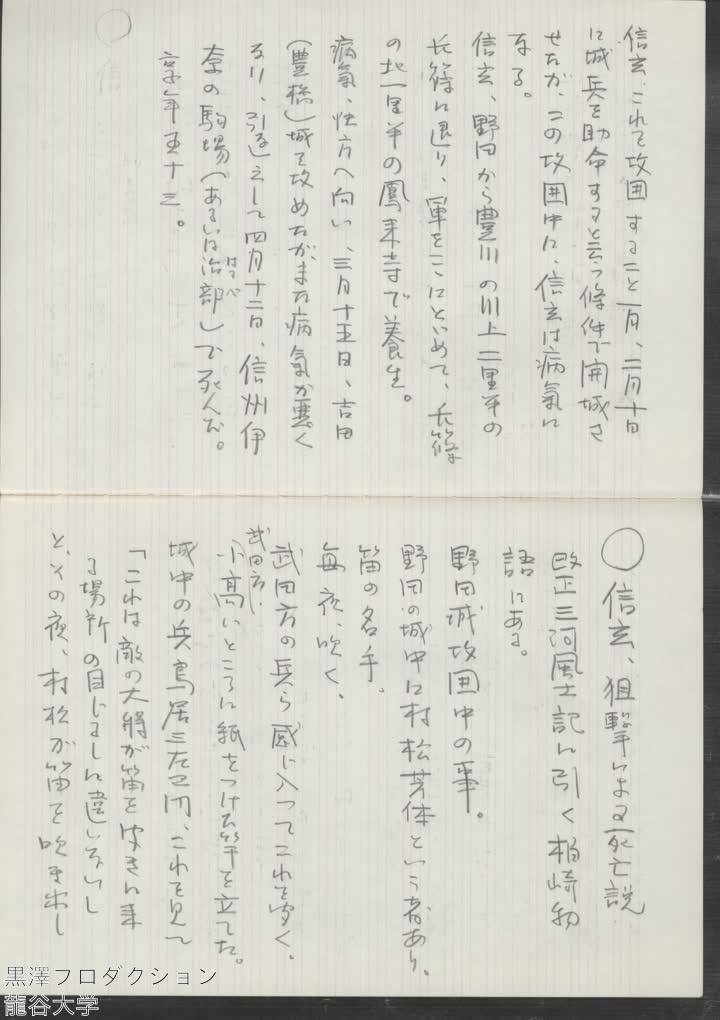 信玄、これを攻囲すること一月、二月十日
に城兵を助命すると云う條件で開城さ
せたが、この攻囲中に、信玄は病氣に
なる。
信玄、野田から豊川の川上二里半の
長篠に退り、軍をここにとどめて、長篠
の北一里半の鳳来寺で養生。
病氣、快方へ向い、三月十五日、吉田
(豊橋)城を攻めたが、また病氣が悪く
なり、引返えして四月十二日、信州伊
奈の駒場(あるいは治部)で死んだ。
はべ
享年五十三。
○信玄、狙撃による死亡説
改正三河風土記に引く柏崎物
語にある。
野田城攻囲中の事。
野田の城中に村松芳休という者あり。
笛の名手。
毎夜、吹く。
武田方の兵ら感に入ってこれを聞く。
武田方、
小高いところに紙をつけた竿を立てた。
城中の兵鳥居三左エ門、これを見て
「これは敵の大將が笛を聞きに来
る場所の目じるしに違いない」
と、その夜、村松が笛を吹き出し
黒澤プロダクション
龍谷大学